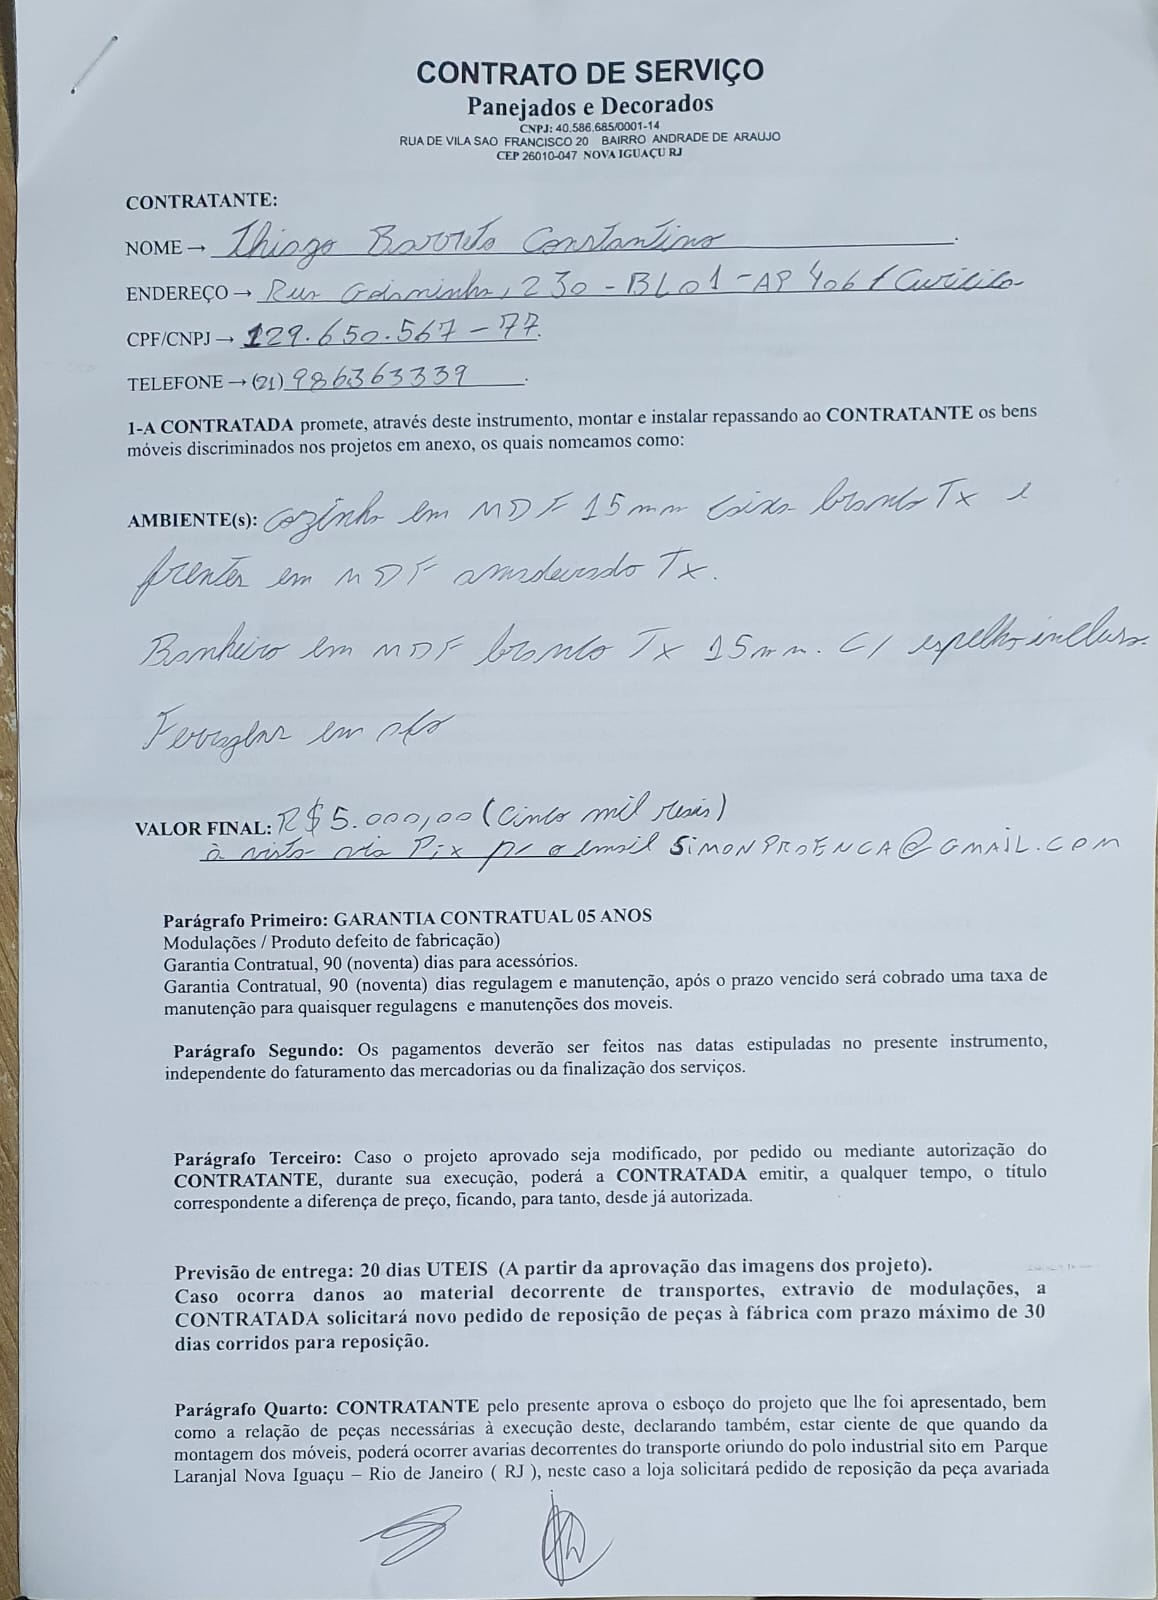 CONTRATO DE SERVIÇO
Panejados e Decorados
CNPJ: 40.586.685/0001-14
RUA DE VILA SAO FRANCISCO 20 BAIRRO ANDRADE DE ARAUJO
CEP 26010-047 NOVA IGUAÇU RJ
CONTRATANTE:
NOME → Thiago Barreto Constantino
ENDEREÇO → Rua , 230 - BL 01 - AP 406 / Curicica
CPF/CNPJ → 129.650.567-77.
TELEFONE → (21) 986363339
1-A CONTRATADA promete, através deste instrumento, montar e instalar repassando ao CONTRATANTE os bens
móveis discriminados nos projetos em anexo, os quais nomeamos como:
AMBIENTE(s): Cozinha em MDF 15mm caixa branco Tx e
frentes em MDF amadeirado Tx.
Banheiro em MDF branco Tx 15mm. C/ espelho incluso
Ferragens em aço
VALOR FINAL: R$ 5.000,00 (Cinco mil reais)
à vista via Pix p/ o email SIMONPROENCA@GMAIL.COM
Parágrafo Primeiro: GARANTIA CONTRATUAL 05 ANOS
Modulações / Produto defeito de fabricação)
Garantia Contratual, 90 (noventa) dias para acessórios.
Garantia Contratual, 90 (noventa) dias regulagem e manutenção, após o prazo vencido será cobrado uma taxa de
manutenção para quaisquer regulagens e manutenções dos moveis.
Parágrafo Segundo: Os pagamentos deverão ser feitos nas datas estipuladas no presente instrumento,
independente do faturamento das mercadorias ou da finalização dos serviços.
Parágrafo Terceiro: Caso o projeto aprovado seja modificado, por pedido ou mediante autorização do
CONTRATANTE, durante sua execução, poderá a CONTRATADA emitir, a qualquer tempo, o título
correspondente a diferença de preço, ficando, para tanto, desde já autorizada.
Previsão de entrega: 20 dias UTEIS (A partir da aprovação das imagens dos projeto).
Caso ocorra danos ao material decorrente de transportes, extravio de modulações, a
CONTRATADA solicitará novo pedido de reposição de peças à fábrica com prazo máximo de 30
dias corridos para reposição.
Parágrafo Quarto: CONTRATANTE pelo presente aprova o esboço do projeto que lhe foi apresentado, bem
como a relação de peças necessárias à execução deste, declarando também, estar ciente de que quando da
montagem dos móveis, poderá ocorrer avarias decorrentes do transporte oriundo do polo industrial sito em Parque
Laranjal Nova Iguaçu – Rio de Janeiro ( RJ ), neste caso a loja solicitará pedido de reposição da peça avariada